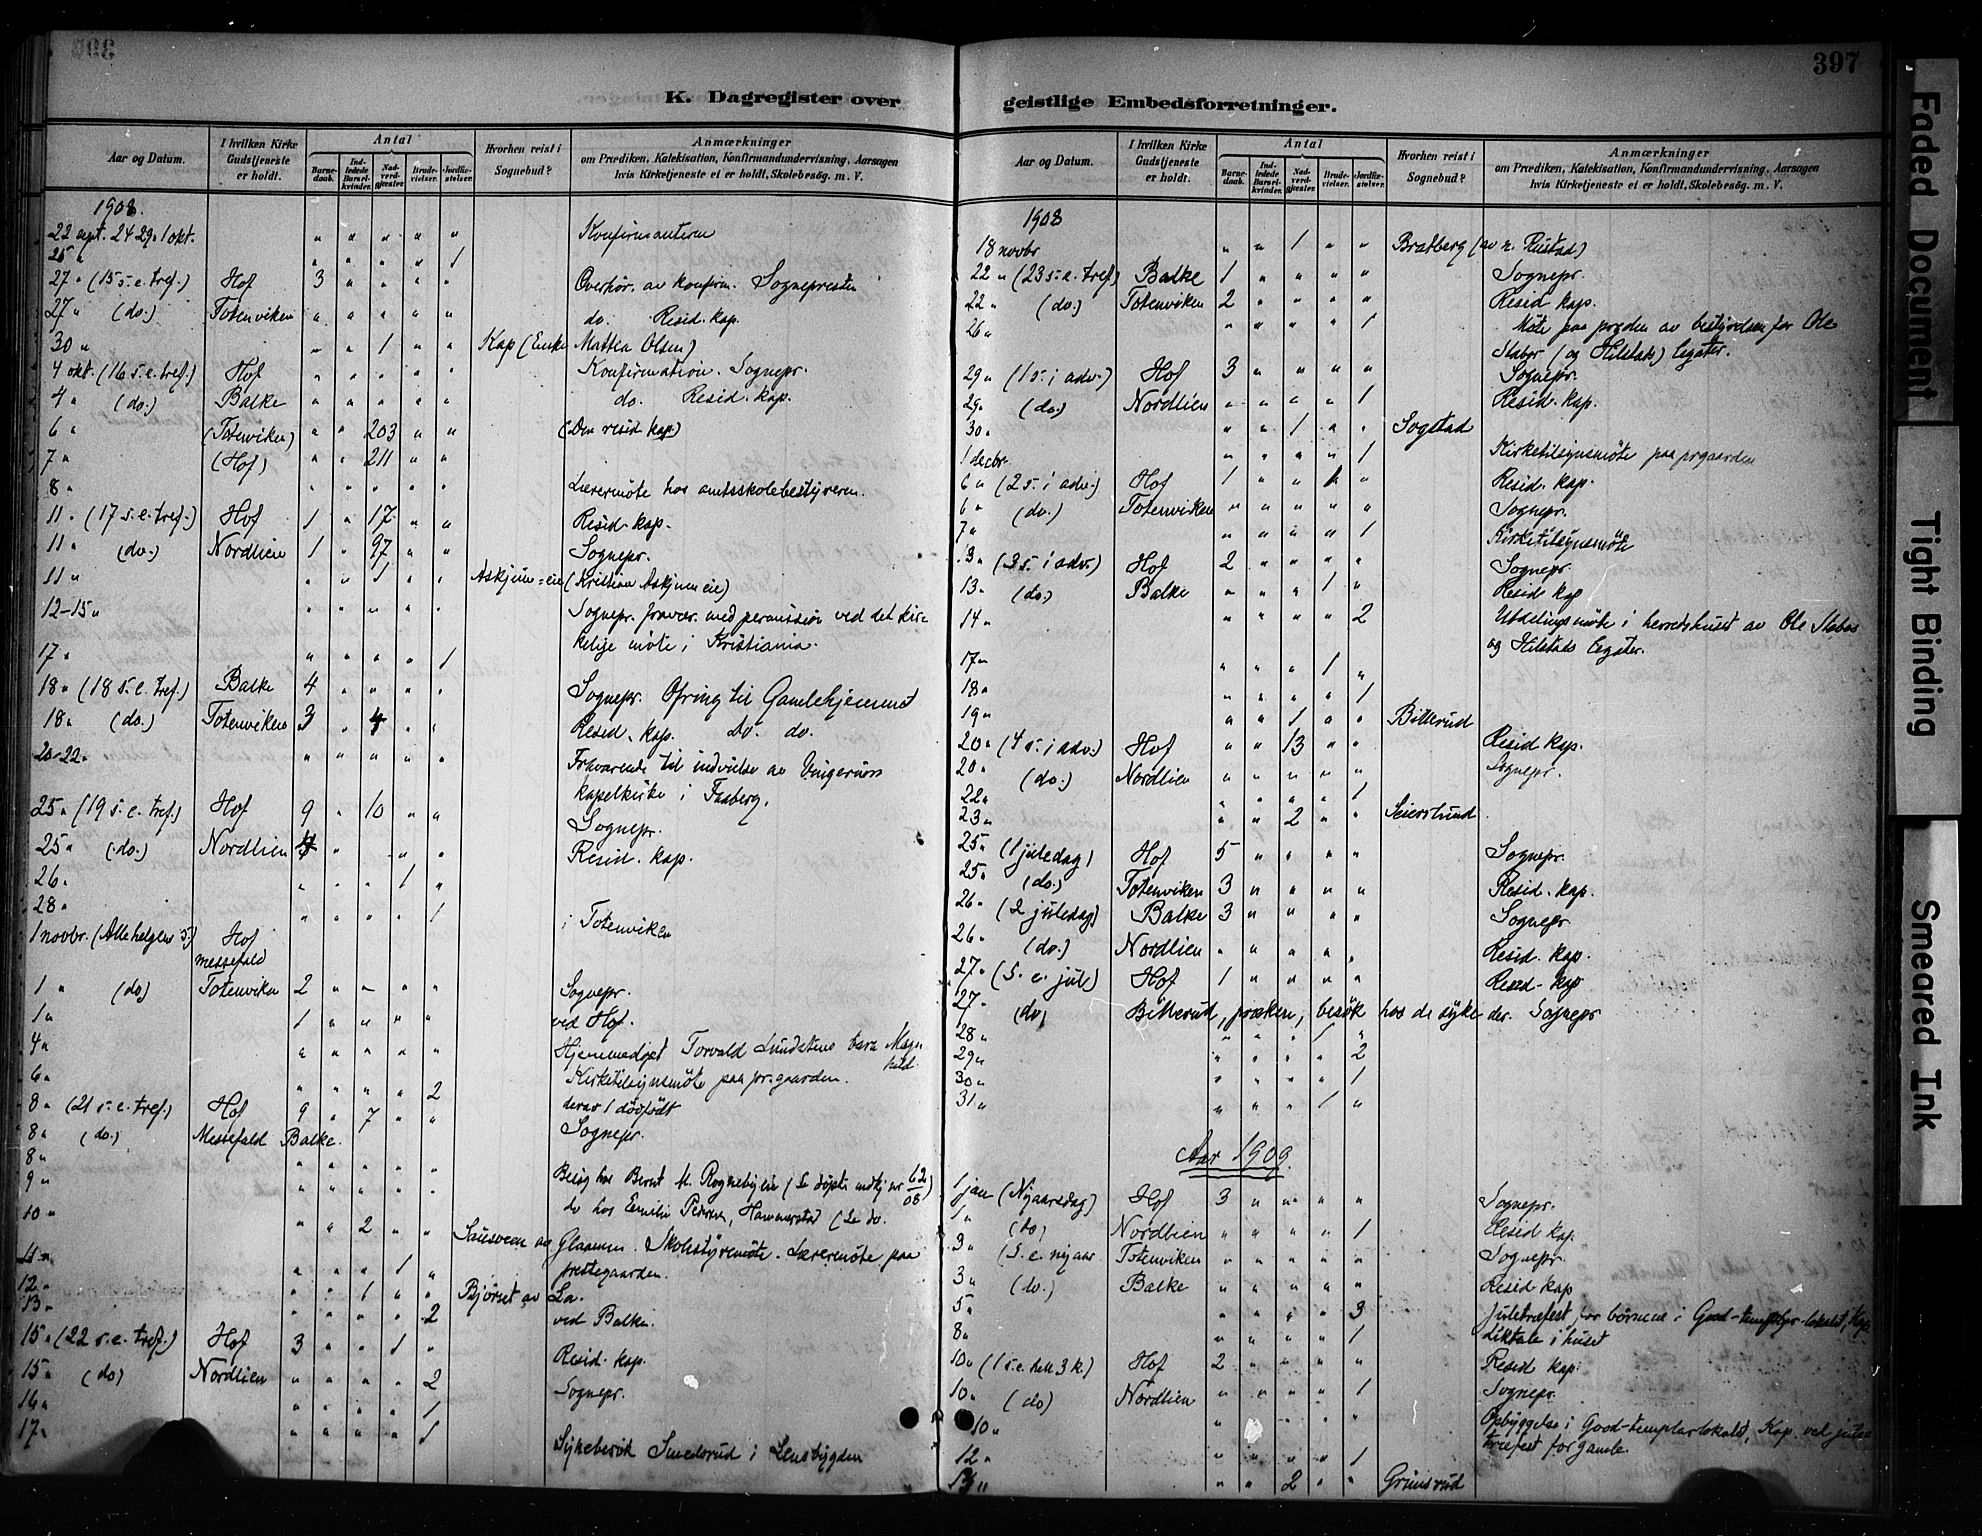 397
K. Dagregister over geistlige Embedsforretninger.
Aar og Datum.
I hvilken Kirke Gudstjeneste er holdt.
Antal
Barnedaab.
Indledede Barselkvinder.
Nadverdgjester.
Brudevielser.
Jordfæstelser.
Hvorhen reist i Sognebud?
Anmærkninger
om Prædiken, Katekisation, Konfirmandundervisning, Aarsagen
hvis Kirketjeneste ei er holdt, Skolebesög. m. V.
1908.
22 sept. 24 29. 1 okt. " " " " " Konfirmanterne
25 " " " " " 1
27 " (15 s. e. tref.) Hof 3 " " " " Overhør. av konfirm. Sognepresten
27 " (do.) Totenviken " " " " " do. Resid. kap.
30 " " " 1 " " Kap (Enke Mathea Olsen)
4 okt. (16 s. e. tref.) Hof " " " " " Konfirmation. Sognepr.
4 " (do.) Balke " " " " " do. Resid. kap.
6 " (Totenviken) " " 203 " " (Den resid kap)
7 " (Hof) " " 211 " "
8 " " " " " " Lærermöte hos amtsskolebestyreren.
11 " (17 s. e. tref.) Hof 1 " 17 " " Resid. kap.
11 " (do.) Nordlien 1 " 97 " " Sognepr.
11 " " " 1 " " Askjum=eie (Kristian Askjum eie)
12-15 " " " " " " Sognepr. fravær. med permission ved det kir=
kelige möte i Kristiania.
17 " " " " " 1
18 " (18 s. e. tref.) Balke 4 " " " " Sognepr. Ofring til Gamlehjemmet
18 " (do.) Totenviken 3 " 4 " " Resid. kap. do. do.
20-22 " " " " " " Fraværende til indvielse av Vingerum
kapelkirke i Faaberg.
25 " (19 s. e. tref.) Hof 9 " 10 " " Sognepr.
25 " (do.) Nordlien " " " " Resid. kap.
26 " " " " 1 "
28 " " " " " 1 i Totenviken
1 novbr. (Allehelgens s.) Hof
messefald
1 " (do) Totenviken 2 " " " " Sognepr.
1 " 1 " " " " ved Hof.
4 " " " " " " Hjemmedøpt Torvald Lundstens barn Magn
hild
6 " " " " " 2 Kirketilsynsmöte paa pr.gaarden.
derav 1 dödfödt
8 " (21 s. e. tref.) Hof 9 " 7 " " Sognepr.
8 " (do.) Messefald Balke.
8 " " " " " "
9 " " " " " " Besøg hos Bernt M. Rognebyeie (Se döpte 62/08)
10 " " " 2 " " do hos Emilie Pedersen, Hammerstad (Se do.
Sausveen av Glaamen. Skolestyremöte. Lærermöte paa
11 " " " " 1 " prestegaarden.
12 " " " 1 " " Bjørset av La.
13 " " " " " 2 ved Balke.
15 " (22 s. e. tref.) Hof 3 " " 1 " Resid. kap.
15 " (do) Nordlien " " " " 2 Sognepr.
16 " " " " " 1
17 " " " " " 1
Sykebesøk Smedsrud i Lensbygden
Aar og Datum.
I hvilken Kirke Gudstjeneste er holdt.
Antal
Barnedaab.
Indledede Barselkvinder.
Nadverdgjester.
Brudevielser.
Jordfæstelser.
Hvorhen reist i Sognebud?
Anmærkninger
om Prædiken, Katekisation, Konfirmandundervisning, Aarsagen
hvis Kirketjeneste ei er holdt, Skolebesög. m. V.
1908
18 novbr " " 1 " " Bratberg (av n. Rustad)
22 " (23 s. e. tref) Balke 1 " " " " Sognepr.
22 " (do.) Totenviken 2 " " " " Resid kap.
26 " " " " " 1 Möte paa prgrden av bestyrelsen for Ole
Stabo (og Hilstads) legater.
29 " (1 s. i adv.) Hof 3 " " " " Sognepr.
29 " (do.) Nordlien " " " " 1 Resid. kap.
30 " " " 1 " " Sogstad
1 decbr. " " " " 1 Kirketilsynsmöte paa prgaarden
6 " (2 s. i adv.) Hof 1 " " " Resid. kap.
6 " (do.) Totenviken " " " " " Sognepr.
7 " " " " " 1 Kirketilsynsmöte
13 " (3 s. i adv.) Hof 2 " " " " Sognepr.
13 " (do.) Balke " " " 1 " Resid kap
14 " " " " " 2 Utdelingsmöte i herredshuset av Ole Stabos
og Hilstads legater.
17 " " " " 1 "
18 " " " " " 1
19 " " " 1 " " Bilterud
20 " (4 s. i adv.) Hof " " 13 " " Resid kap.
20 " (do.) Nordlien " " " " " Sognepr.
22 " " " " " 1
23 " " " 2 " " Seierslund
25 " (1 juledag) Hof 5 " " " " Sognepr.
25 " (do.) Totenviken 3 " " " " Resid. kap.
26 " (2 juledag) Balke 3 " " " " Sognepr
26 " (do.) Nordlien " " " " " Resid. kap.
27 " (s. e. jul) Hof 1 " " " " Resid- kap
27 " (do) Bilterud, præken, besök hos de syke der. Sognepr
28 " " " " 1 "
29 " " " " " 2
30 " " " " " 1
31 " " " " 1 "
Aar 1909.
1 jan (Nyaarsdag) Hof 3 " " " " Sognepr.
1 " (do) Nordlien " " " " 1 Resid kap.
3 " (s. e. nyaar Totenviken " " " " " Sognepr.
3 " (do.) Balke " " " " " Resid kap
5 " " " " " 3 Juletræfest for börnene i Good-templar-lokalet, Kap
8 " " " " " 1 Liktale i huset
10 " (1 s. e. hell. 3 k.) Hof 2 " " " " Resid kap.
10 " (do) Nordlien " " " " 1 Sognepr.
10 " " " " " Opbyggelse i Good-templarlokalet, Kap, ved jule
træfest for gamle.
12 " " " " " 1
" " 2 " " Grimsrud
Faded Document
Tight Binding
Smeared Ink